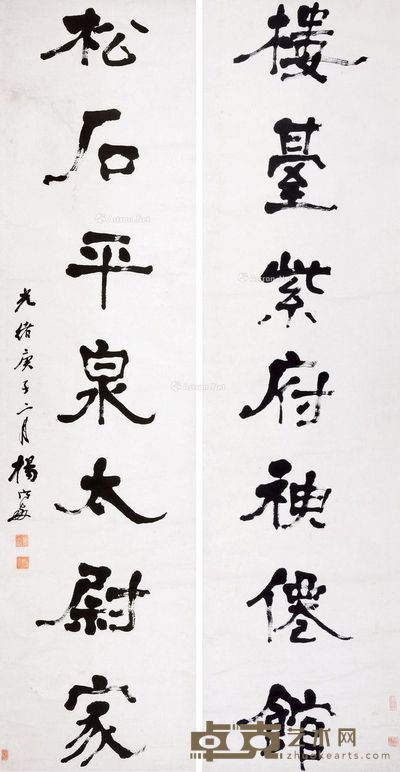 樓臺紫府神僊館
松石平泉太尉家
光緒庚子二月 楊
艺术网
zhuokearts.com
Artron.Net
Artron.Net
Artron.Net